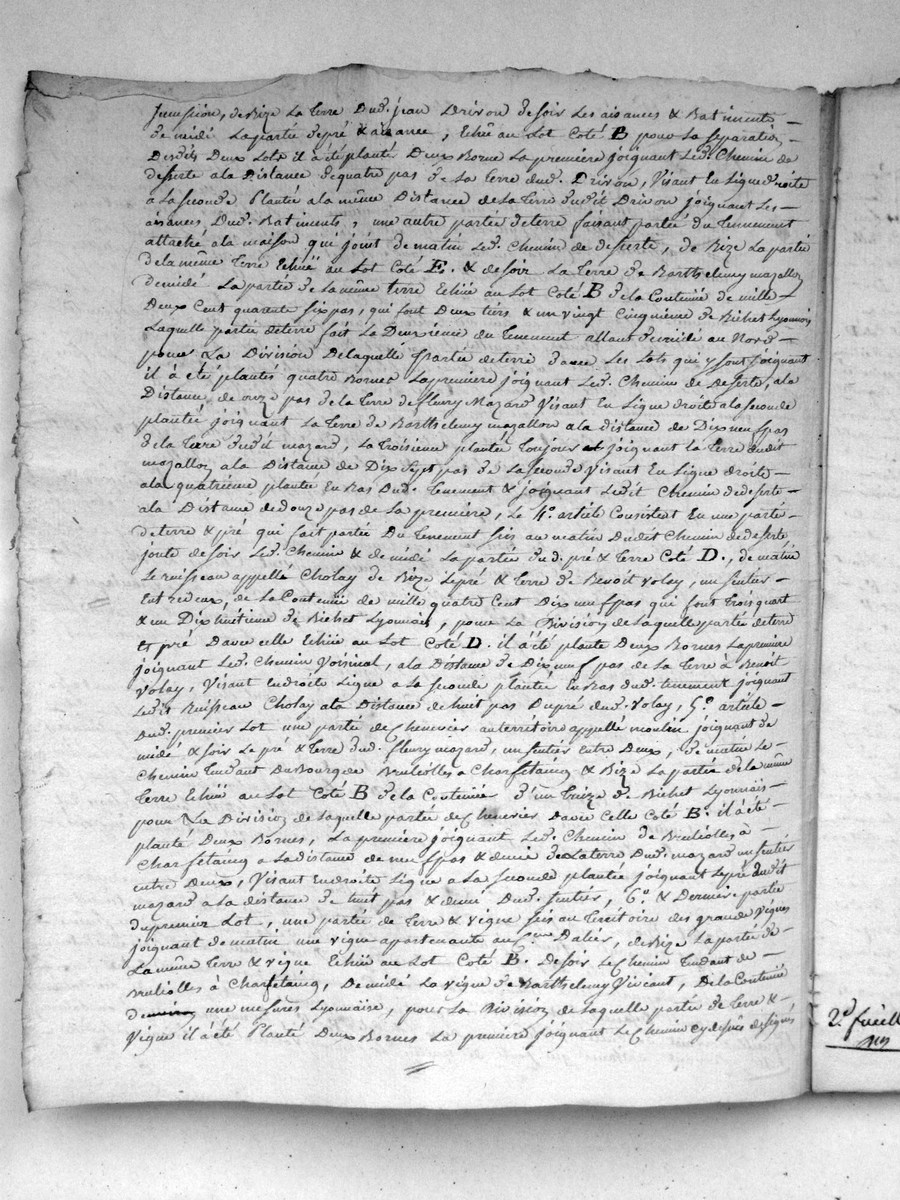 de Bize La terre Dud. jean Drivon de soir Les aisances & Batiments
de midi La partie de pré & aisance, Echûe au Lot Coté B pour La séparation
Desdits Deux Lots il à été planté Deux Borne La première joignant Led. Chemin de
deserte a la Distance de quatre pas de La terre dud. Drivon, Visant En Ligne droite
a La seconde Plantée a la même Distance de La terre dudit Drivon joignant Les
aisances Dud. Batiments, une autre partie de terre faisant partie du Tennement
attaché a la maison qui joint de matin Led. Chemin de deserte, de Bize La partie
de la même Terre Echûe au Lot Coté E. & de soir La Terre de Barthelemy mazallon
de midi La partie de La même terre Echûe au Lot Coté B de la Contenûe de mille
Deux Cent quarente six pas, qui font Deux tiers & un vingt Cinquième de Bichet Lyonnois
Laquelle partie de terre fait La Deuxième du Tenement allant de midi au Nord
pour La Division De laquelle partie de terre d'avec Les Lots qui y sont joignant
il à été plantés quatre Bornes La première joignant Led. Chemin de Deserte, a la
Distance de onze pas de la Terre de fleury Mazard Visant En Ligne droite a la seconde
plantée joignant La Terre de Barthelemy mazallon a la distance de Dix neuf pas
de la Terre dudit mazard, La Troisieme plantée Toujours joignant la Terre dudit
mazallon a la Distance de Dix sept pas de La seconde Visant En Ligne droite
a la quatrième plantée En Bas Dud. Tenement & joignant Ledit Chemin de deserte
a la Distance de douze pas de La première, Le 4e. article Consistent En une partie
de terre & pré qui fait partie Du Tenement sis au matin Dudit Chemin de deserte
joute de soir Led. Chemin & de midi La partie dud. pré & Terre Coté D., de matin
Le ruisseau appellé Cholay de Bize Le pré & Terre de Benoit Volay, un sentier
Entredeux, de La Contenûe de mille quatre Cent Dix neuf pas qui font Trois quart
& un Dixhuitieme de Bichet Lyonnais, pour La Division de Laquelle partie de terre
et pré Davec celle Echûe au Lot Coté D. il à été planté Deux Bornes La première
joignant Led. Chemin Voisinal, a la Distance de Dix neuf pas de La Terre à Benoit
Volay, Visant En droite Ligne a La seconde plantée En Bas dud. tenement joignant
Ledit Ruisseau Cholay a la Distance de huit pas Du pré dud. Volay, 5o. article
Dud. premier Lot une partie de Chenevier au territoire appellé moulin joignant de
midi & soir Le pré & Terre dud. fleury mazard, un sentier entre Deux, de matin Le
Chemin Tendant Du Bourg de Brulioles a Charfetaing & Bize La partie de la même
Terre Echûe au Lot Coté B de la Contenûe d'un Treize de Bichet Lyonnais
pour La Division de Laquelle partie de Chenevier Davec Celle Coté B. il à été
planté Deux Bornes, La première joignant Led. Chemin de Brulioles à
Charfetaing a La distance de neuf pas & demie de La terre Dud. mazard un sentier
entre Deux, Visant En droite Ligne a La seconde plantée joignant Le pré dudit
mazard a La distance de huit pas & demi Dud. sentier, 6o. & Dernier partie
du premier Lot, une partie de Terre & vigne sis au Territoire des grande Vignes
joignant de matin une vigne apartenante au Sieur Daliès, de Bize La partie de
La même Terre & vigne Echûe au Lot Coté B. De soir Le Chemin Tendant de
Brulioles à Charfetaing, De midi La vigne de Barthelemy Vivant, De La Contenûe
une mesures Lyonnaise, pour La Division de Laquelle partie de Terre &
Vigne il à été Planté Deux Bornes La première joignant Le Chemin cy dessus designé
2e. feuille